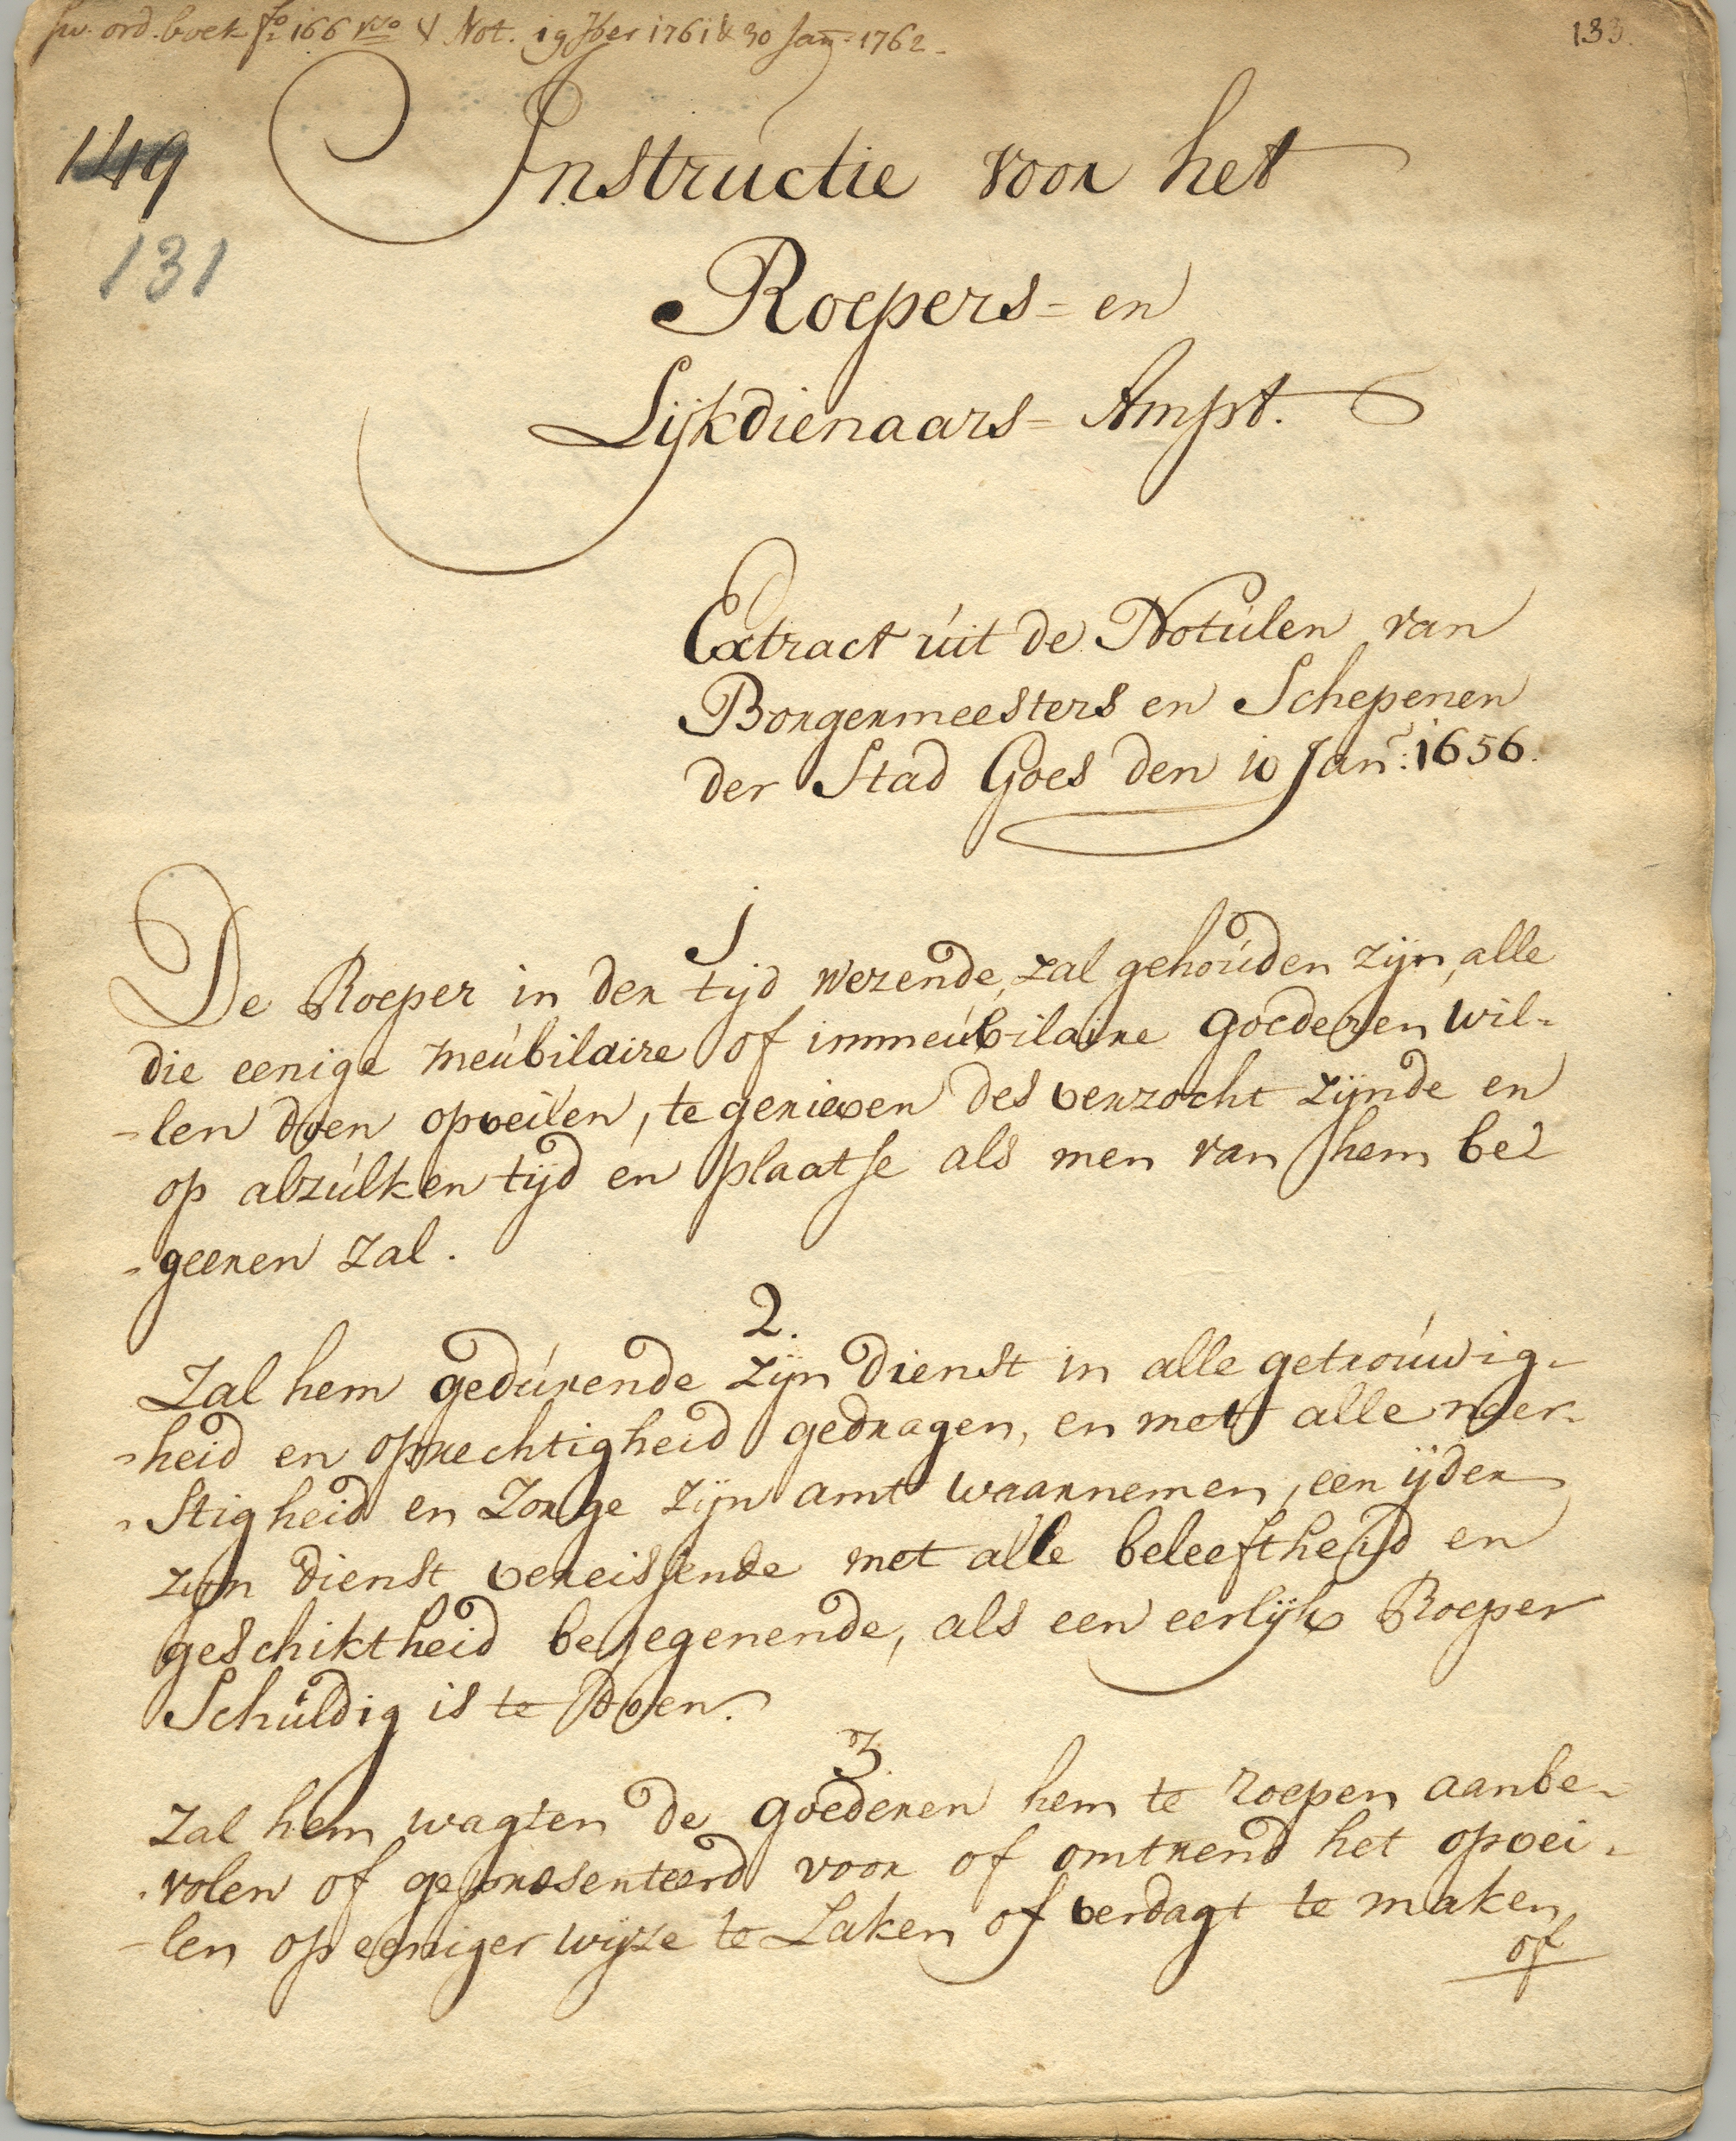 ord. boek fo 166 vso & Not. 19 7ber 1761 & 30 Jan: 1762.
133.
149
131
Instructie voor het
Roepers- en
Lijkdienaars- Ampt.
Extract uit de Notulen van
Borgermeesters en Schepenen
der Stad Goes den 10 Janr: 1656.
1
De Roeper in der tijd wezende, zal gehouden zijn, alle
die eenige meubilaire of immeubilaire goederen wil-
-len doen opveilen, te gerieven des verzocht zijnde en
op alzulken tijd en plaatse als men van hem be-
-geeren zal.
2.
Zal hem gedurende zijn dienst in alle getrouwig-
-heid en oprechtigheid gedragen, en met alle neer-
-stigheid en zorge zijn amt waarnemen, een ijder
zijn dienst vereissende met alle beleeftheijd en
geschiktheid bejegenende, als een eerlijk Roeper
Schuldig is te doen.
3.
Zal hem wagten de goederen hem te roepen aanbe-
-volen of gepresenteerd voor of omtrend het opvei-
-len op eeniger wijze te Laken of verdagt te maken
of